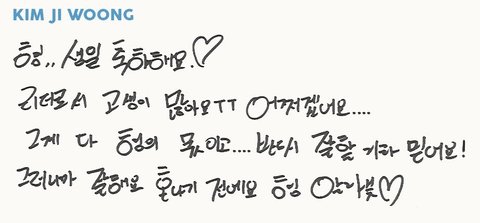 KIM JI WOONG
형,, 생일 축하해요♡
리더로서 고생이 많아요TT 어쩌겠어요....
그게 다 형의 몫이고.... 반드시 잘할 거라 믿어요!
그러니까 잘해요 혼나기 전에요 형 알라븆♡